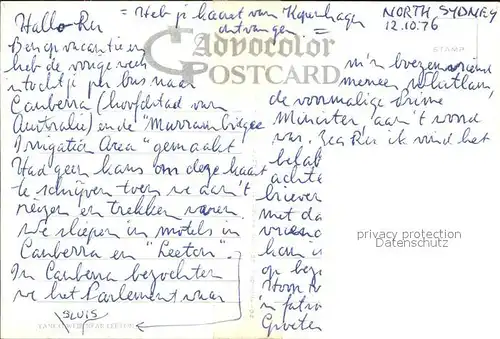 = Heb je kaart van Kopenhagen
ontvangen =
NORTH SYDNEY
12.10.76
Hallo Ria
Advocolor
POSTCARD
STAMP
Ben op vacantie en
heb de vorige week
'n tochtje per bus naar
Canberra (hoofdstad van
Australië) en de "Murrumbidgee
Irrigation Area" gemaakt
Had geen kans om deze kaart
te schrijven toen we aan't
reizen en trekken waren.
We sliepen in motels in
Canberra en "Leeton".
In Canberra bezochten
we het Parlement waar
SLUIS
LEETON
m'n boezemvriend
meneer Whitlam,
de voormalige Prime
Minister, aan't woord
was. Zeg Ria ik vind het
belab
achte
brieven
met da
vriend
kan i
op bez
Groeten
privacy protection
Datenschutz